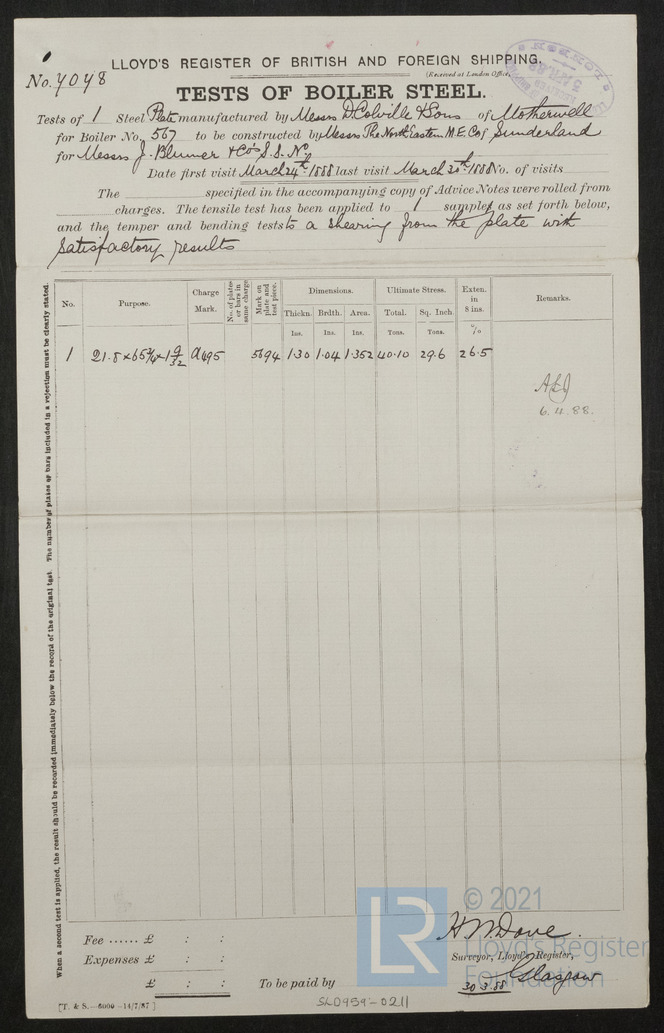 LLOYD'S REGISTER OF BRITISH AND FOREIGN SHIPPING.
No. 4048
(Received at London Office,
TESTS OF BOILER STEEL.
Tests of 1 Steel Plate manufactured by Messrs D. Colville & Sons of Motherwell
for Boiler No. 567 to be constructed by Messrs The North Eastern M.E. Co of Sunderland
for Messrs J. Blumer & Co's S.S. No.
Date first visit March 24th 1888 last visit March 30th 1888 No. of visits
The specified in the accompanying copy of Advice Notes were rolled from
charges. The tensile test has been applied to 1 samples as set forth below,
and the temper and bending tests to a shearing from the plate with
satisfactory results
No. Purpose. Charge Mark. No. of plates or bars in same charge Mark on plate and test piece. Dimensions. Ultimate Stress. Exten. in 8 ins. Remarks.
Thickn. Brdth. Area. Total. Sq. Inch
Ins. Ins. Ins. Tons. Tons. %
1 21.8 × 65 3/4 × 1 9/32 A495 5694 1.30 1.04 1.352 40.10 29.6 26.5
6.4.88.
When a second test is applied, the result should be recorded immediately below the record of the original test. The number of plates or bars included in a rejection must be clearly stated.
Fee ...... £ : :
Expenses £ : :
£ : :
To be paid by
H W Dove.
Surveyor, Lloyd's Register,
Glasgow
30.3.88
[T. & S.—6000—14/7/87]
SLD959-0211
LR
© 2021
Lloyd's Register
Foundation